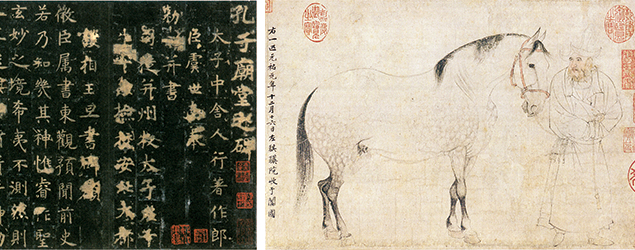 孔子廟堂之碑
太子中舍人行著作郎
臣虞世南奉
勑 并書
司徒并州牧太子左千
牛率兼檢校安北大都
護相王旦書碑額
微臣屬書東觀預聞前史
若乃知幾其神惟睿作聖
玄妙之境希夷不測然則
右一匹元祐元年十二月十六日左騏驥院收于闐國